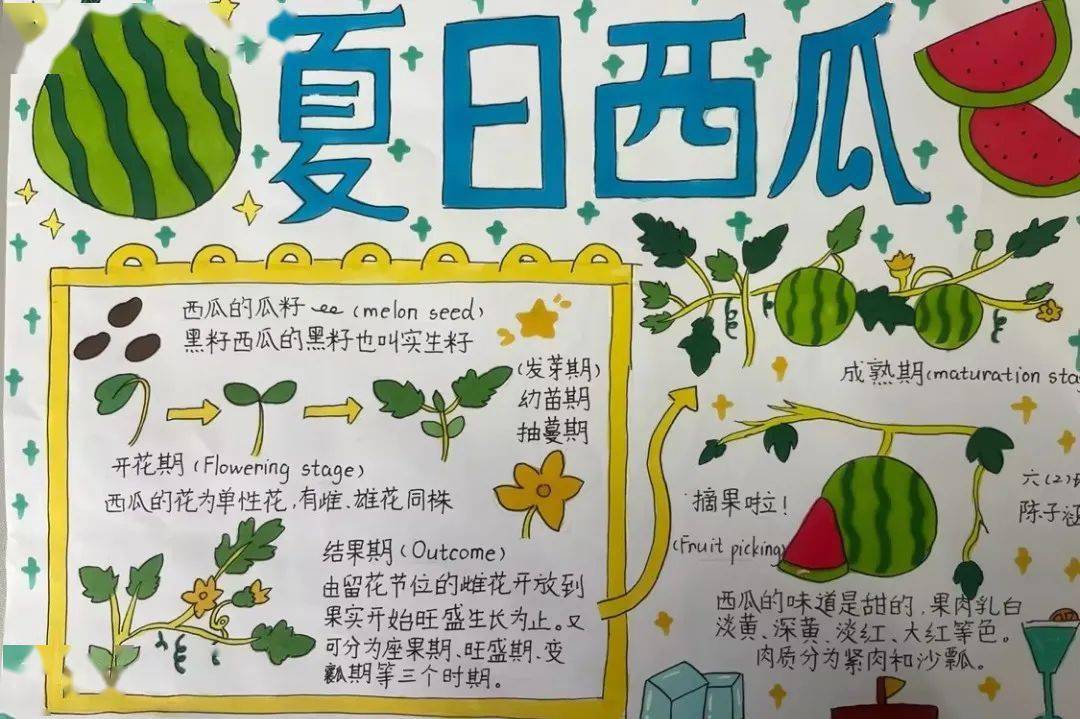 夏日西瓜
西瓜的瓜籽 (melon seed)
黑籽西瓜的黑籽也叫实生籽
(发芽期)
幼苗期
抽蔓期
开花期 (Flowering stage)
西瓜的花为单性花,有雌、雄花同株
结果期 (Outcome)
由留花节位的雌花开放到
果实开始旺盛生长为止。又
可分为座果期、旺盛期、变
瓤期等三个时期。
成熟期(maturation sta
摘果啦!
(Fruit picking)
六(2)
陈子涵
西瓜的味道是甜的,果肉乳白
淡黄、深黄、淡红、大红等色。
肉质分为紧肉和沙瓤。